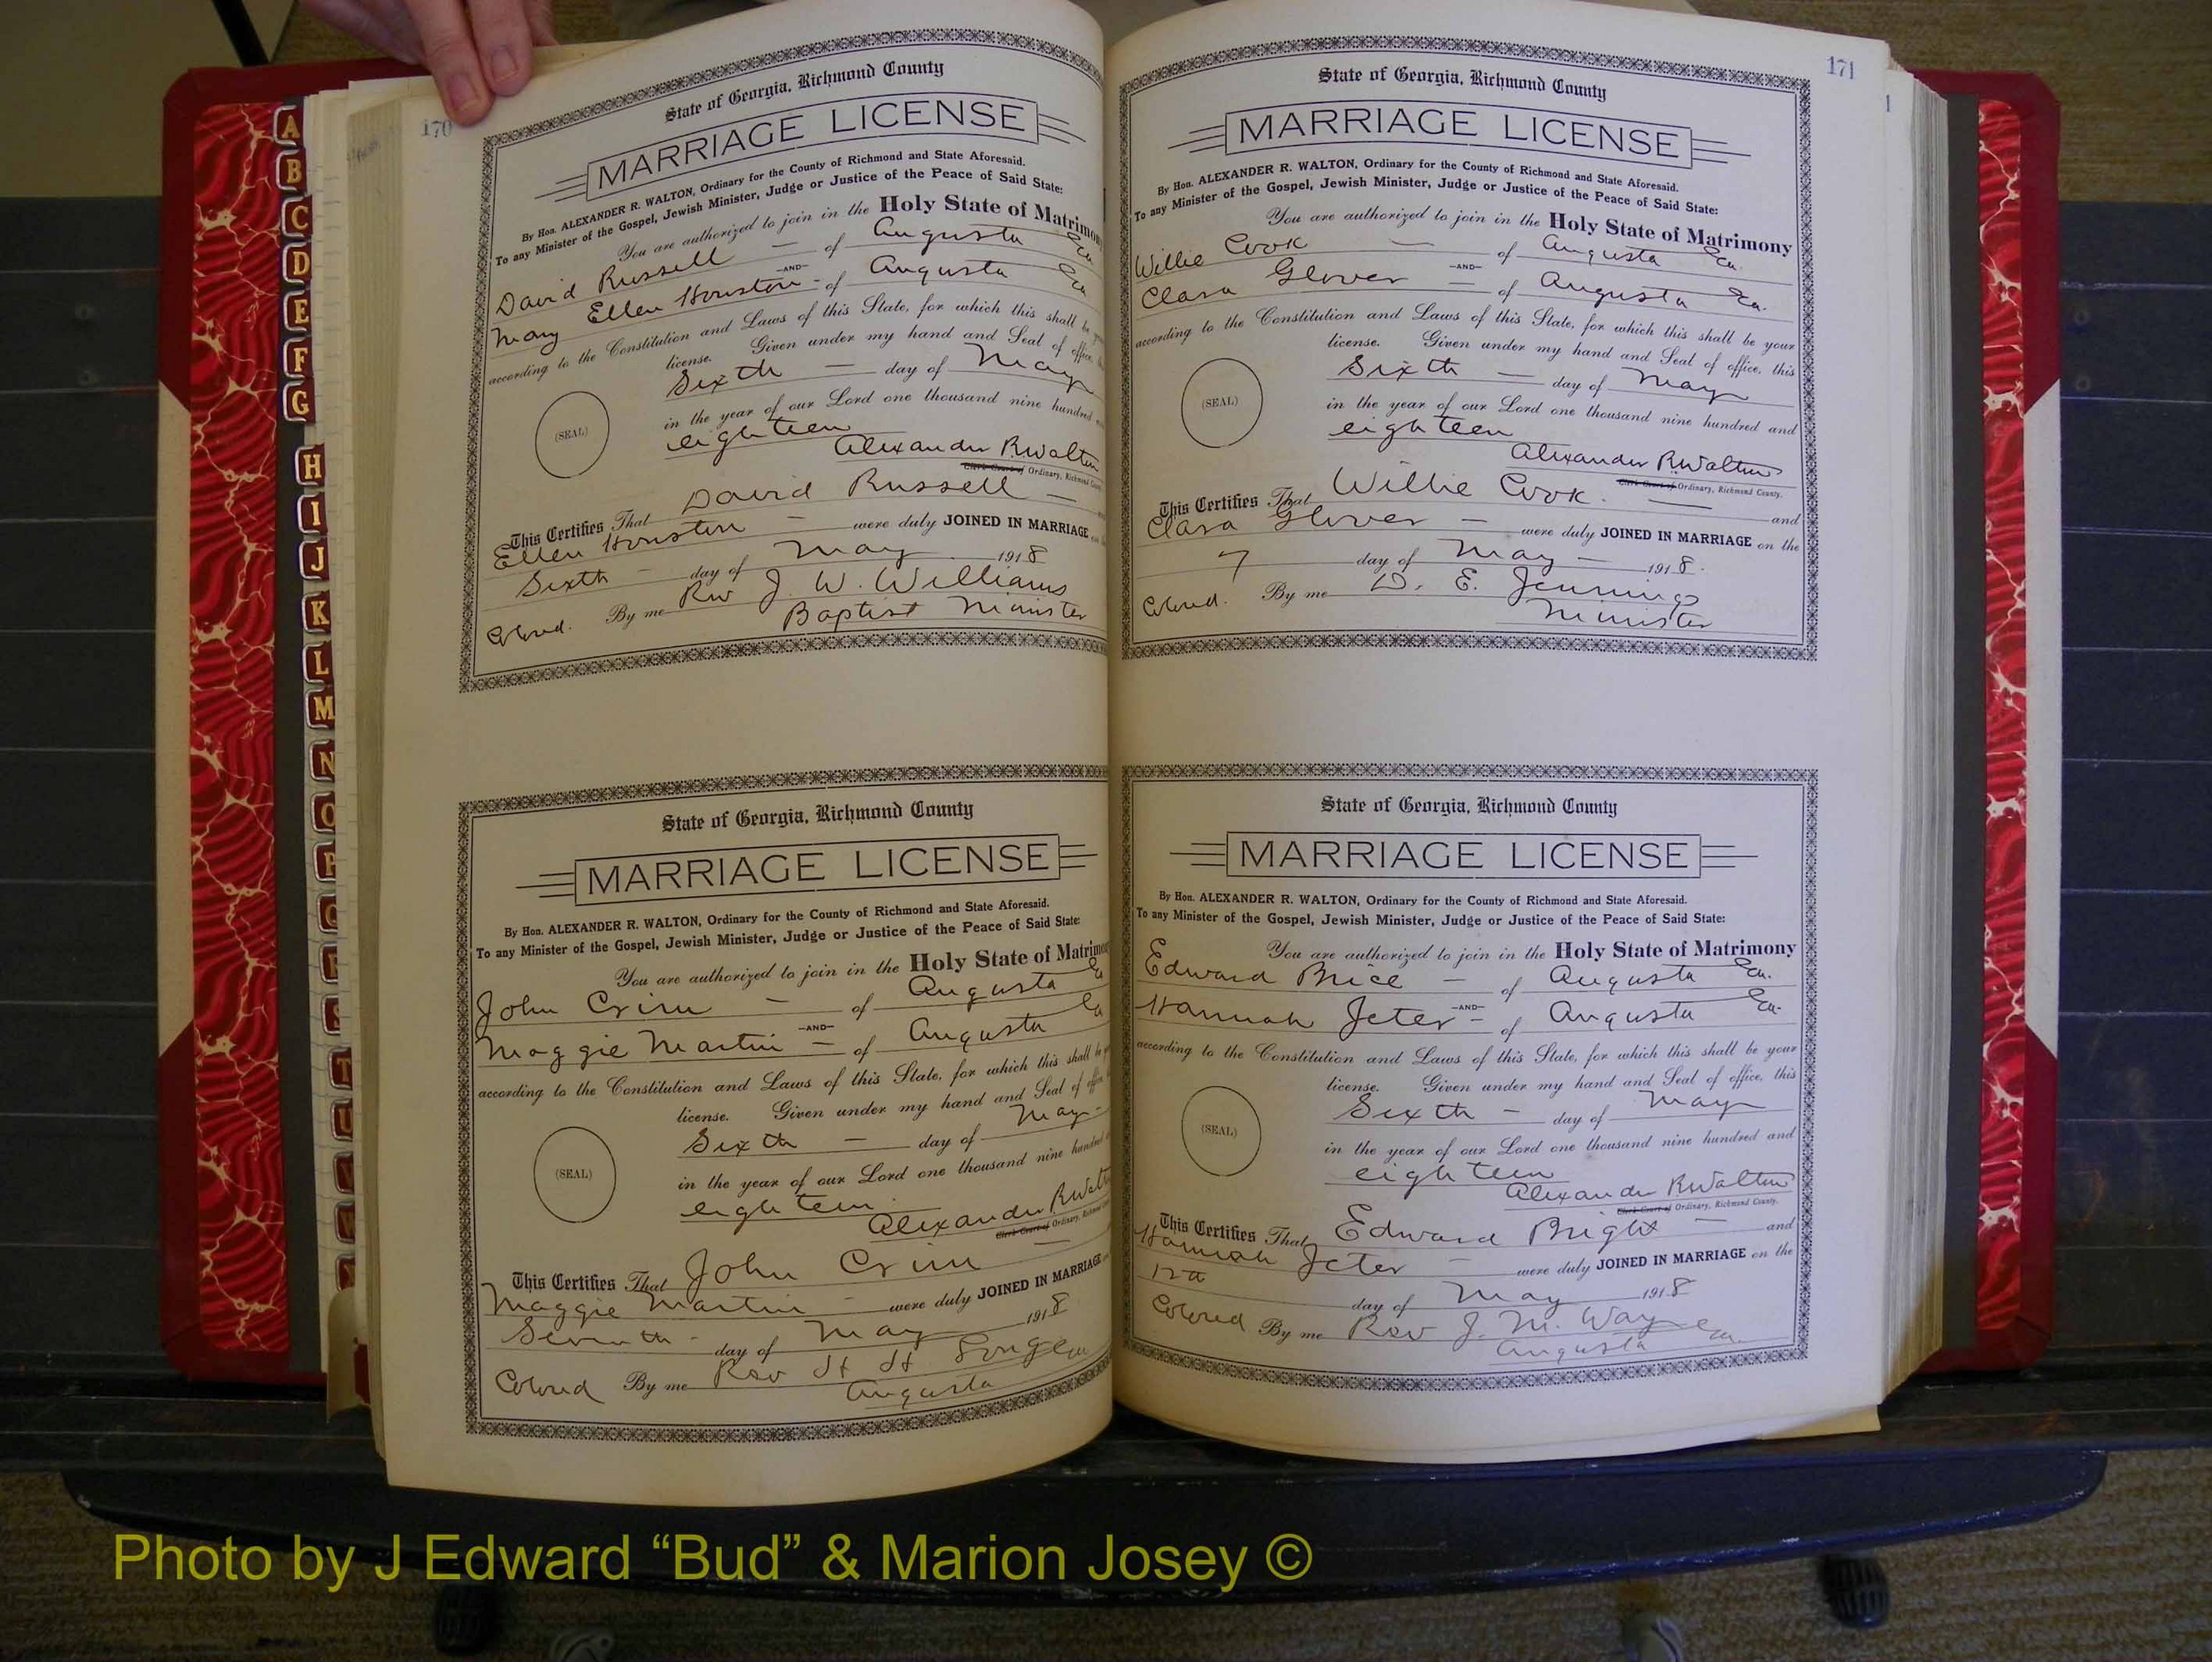 170
State of Georgia, Richmond County
MARRIAGE LICENSE
By Hon. ALEXANDER R. WALTON, Ordinary for the County of Richmond and State Aforesaid.
To any Minister of the Gospel, Jewish Minister, Judge or Justice of the Peace of Said State:
You are authorized to join in the Holy State of Matrimony
David Russell — of Augusta Ga
—AND—
Mary Ellen Houston - of Augusta Ga
according to the Constitution and Laws of this State, for which this shall be your
license. Given under my hand and Seal of office,
Sixth — day of May
(SEAL)
in the year of our Lord one thousand nine hundred
eighteen
Alexander R Walton
Clerk Court of Ordinary, Richmond County.
This Certifies That David Russell —
Ellen Houston — were duly JOINED IN MARRIAGE
Sixth — day of May 1918
Colored. By me Rev J. W. Williams
Baptist Minister
State of Georgia, Richmond County
MARRIAGE LICENSE
By Hon. ALEXANDER R. WALTON, Ordinary for the County of Richmond and State Aforesaid.
To any Minister of the Gospel, Jewish Minister, Judge or Justice of the Peace of Said State:
You are authorized to join in the Holy State of Matrimo
John Crim — of Augusta Ga
—AND—
Maggie Martin — of Augusta Ga
according to the Constitution and Laws of this State, for which this shall be
license. Given under my hand and Seal of office
Sixth — day of May -
(SEAL)
in the year of our Lord one thousand nine hundred
eighteen
Alexander R Walt
Clerk Court of Ordinary, Richmond
This Certifies That John Crim
Maggie Martin — were duly JOINED IN MARRIAGE
Seventh - day of May 1918
Colored By me Rev H H
Augusta
171
State of Georgia, Richmond County
MARRIAGE LICENSE
By Hon. ALEXANDER R. WALTON, Ordinary for the County of Richmond and State Aforesaid.
To any Minister of the Gospel, Jewish Minister, Judge or Justice of the Peace of Said State:
You are authorized to join in the Holy State of Matrimony
Willie Cook — of Augusta Ga.
—AND—
Clara Glover — of Augusta Ga.
according to the Constitution and Laws of this State, for which this shall be your
license. Given under my hand and Seal of office, this
Sixth — day of May
(SEAL)
in the year of our Lord one thousand nine hundred and
eighteen
Alexander R. Walton
Clerk Court of Ordinary, Richmond County.
This Certifies That Willie Cook. — and
Clara Glover — were duly JOINED IN MARRIAGE on the
7 day of May — 1918.
Colored. By me D. E. Jennings
Minister
State of Georgia, Richmond County
MARRIAGE LICENSE
By Hon. ALEXANDER R. WALTON, Ordinary for the County of Richmond and State Aforesaid.
To any Minister of the Gospel, Jewish Minister, Judge or Justice of the Peace of Said State:
You are authorized to join in the Holy State of Matrimony
Edward Brice — of Augusta Ga.
—AND—
Hannah Jeter — of Augusta Ga.
according to the Constitution and Laws of this State, for which this shall be your
license. Given under my hand and Seal of office, this
Sixth — day of May
(SEAL)
in the year of our Lord one thousand nine hundred and
eighteen
Alexander R Walton
Clerk Court of Ordinary, Richmond County.
This Certifies That Edward Bright — and
Hannah Jeter — were duly JOINED IN MARRIAGE on the
12th day of May 1918
Colored By me Rev J. M. Way
Augusta Ga
A
B
C
D
E
F
G
H
I
J
K
L
M
N
O
P
Q
R
S
T
U
V
W
Photo by J Edward “Bud” & Marion Josey ©